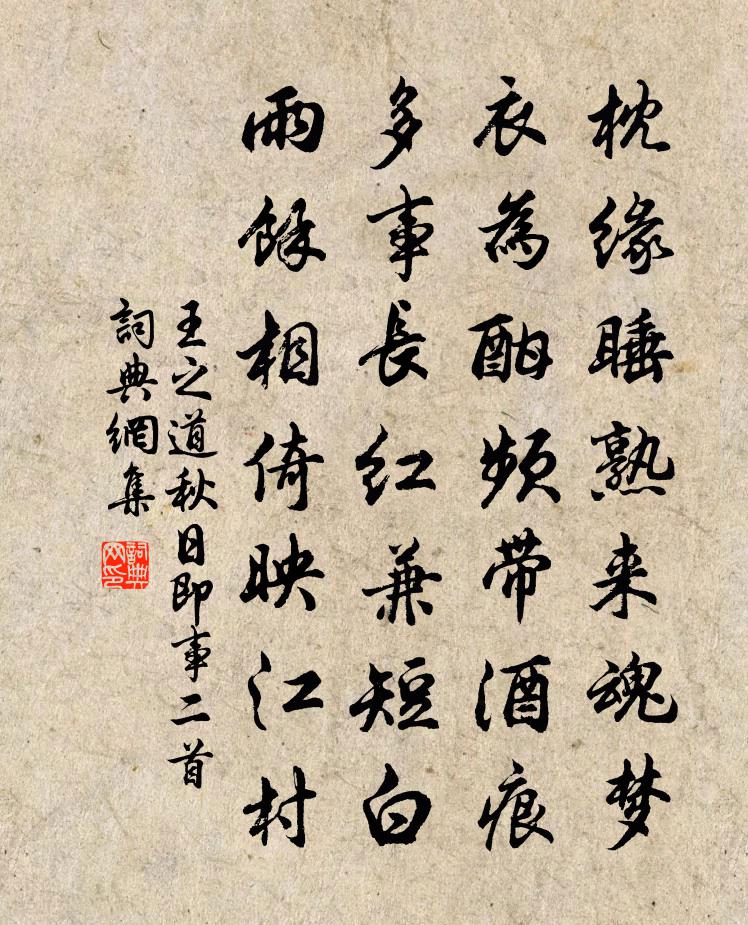 枕缘睡熟来魂梦
衣為酣频带酒痕
多事長红兼短白
雨餘相倚映江村
王之道秋日即事二首
詞典網集
詞典网印